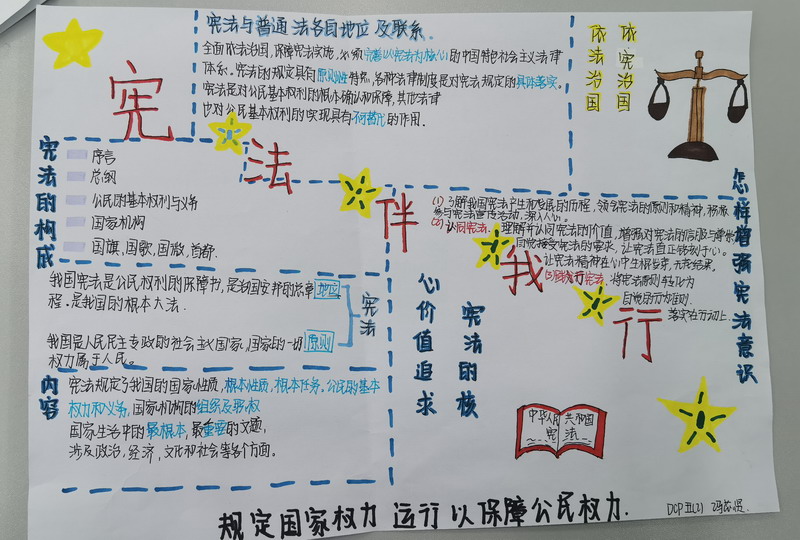 宪法与普通法各自地位及联系.
全面依法治国,保障宪法实施,必须完善以宪法为核心的中国特色社会主义法律
体系。宪法的规定具有原则性特点,各种法律制度是对宪法规定的具体落实。
宪法是对公民基本权利的根本确认和保障,其他法律
也对公民基本权利的实现具有不可替代的作用.
依宪治国
依法治国
宪法伴我行
宪法的构成
序言
总纲
公民的基本权利与义务
国家机构
国旗,国歌,国徽,首都.
我国宪法是公民权利的保障书,是治国安邦的总章
程.是我国的根本大法.
地位
我国是人民民主专政的社会主义国家,国家的一切
权力属于人民。
原则
宪法
内容
宪法规定了我国的国家性质,根本性质,根本任务。公民的基本
权力和义务,国家机构的组织及职权
国家生活中的最根本,最重要的问题,
涉及政治,经济,文化和社会等各个方面。
怎样增强宪法意识
(1)了解我国宪法产生和发展的历程,领会宪法的原则和精神,积极
参与宪法宣传活动,深入人心。
(2)认同宪法.理解并认同宪法的价值,增强对宪法的信服与
自觉接受宪法的要求,让宪法真正铭刻于心。
让宪法精神在心中生根发芽,开花结果。
(3)践行宪法.将宪法原则转化为
自觉的行为准则.
落实在行动上.
宪法的核
心价值追求
中华人民共和国
宪法
规定国家权力 运行以保障公民权力.